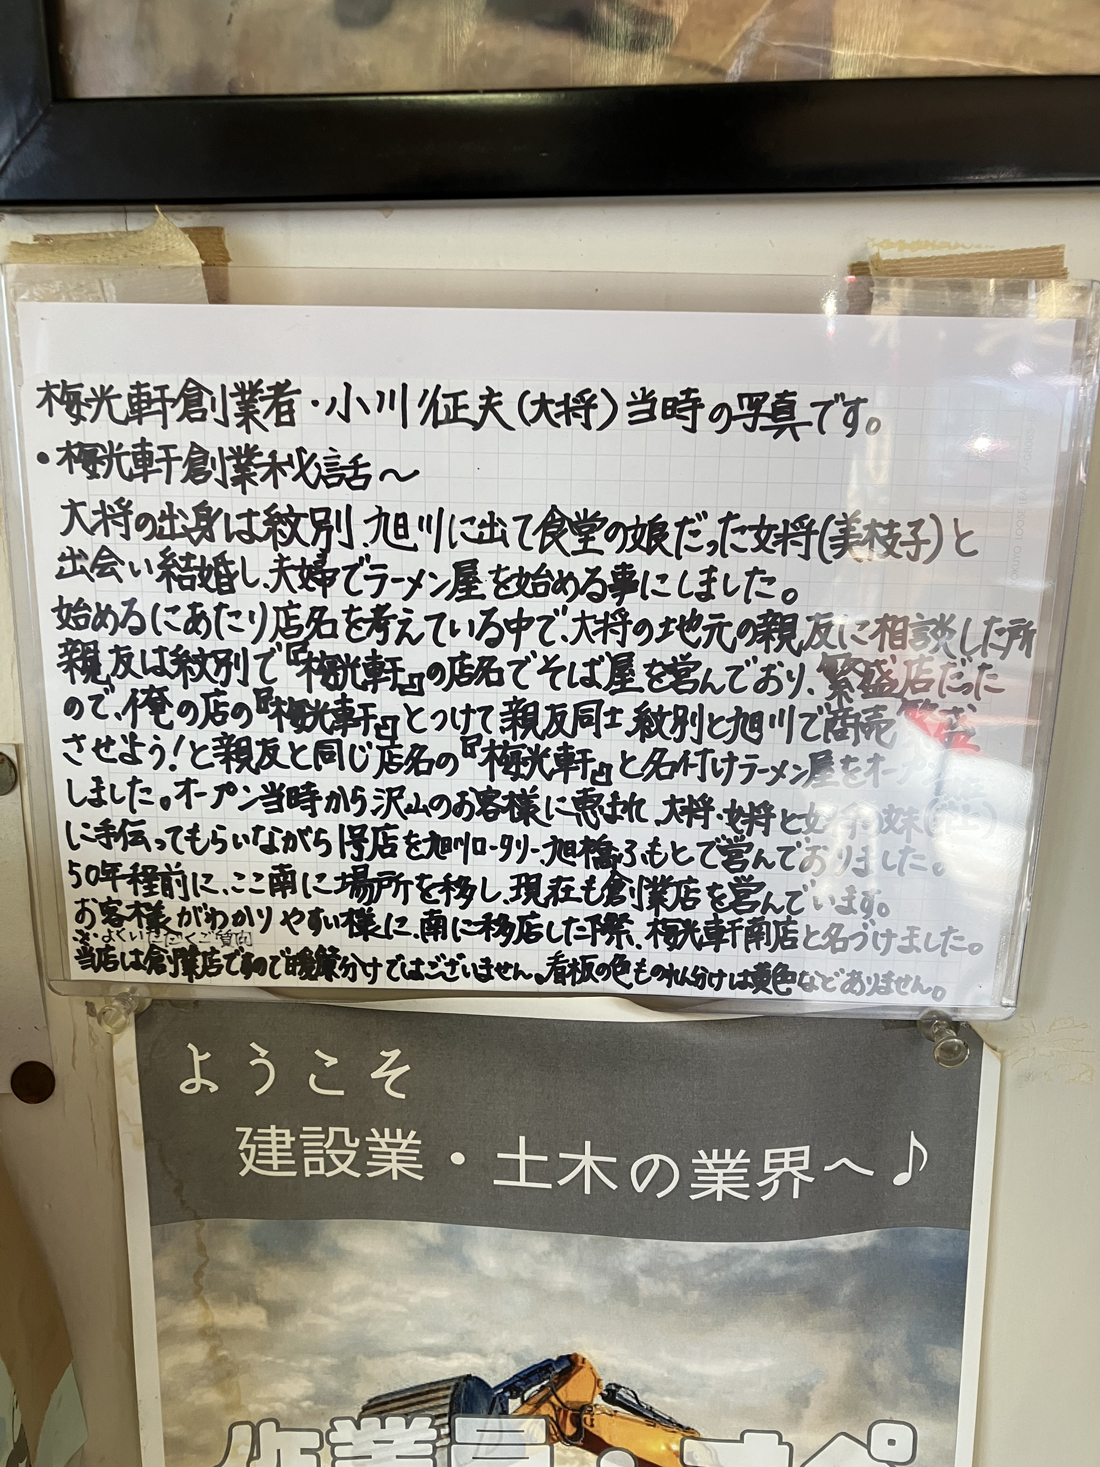 梅光軒創業者・小川征夫(大将)当時の写真です。
・梅光軒創業秘話～
大将の出身は紋別、旭川に出て食堂の娘だった女将(美枝子)と
出会い結婚し、夫婦でラーメン屋を始める事にしました。
始めるにあたり店名を考えている中で、大将の地元の親友に相談した所
親友は紋別で『梅光軒』の店名でそば屋を営んでおり、繁盛店だった
ので、俺の店の『梅光軒』とつけて親友同士紋別と旭川で商売繁盛
させよう!と親友と同じ店名の『梅光軒』と名付けラーメン屋をオープン
しました。オープン当時から沢山のお客様に恵まれ、大将・女将と女将の妹
に手伝ってもらいながら1号店を旭川ロータリー、旭橋ふもとで営んでおりました。
50年程前に、ここ南に場所を移し、現在も創業店を営んでいます。
お客様がわかりやすい様に、南に移店した際、梅光軒南店と名づけました。
※・よくいただくご質問
当店は創業店ですので暖簾分けではございません。看板の色ものれん分けは黄色などありません。
ようこそ
建設業・土木の業界へ♪
作業員・オペ